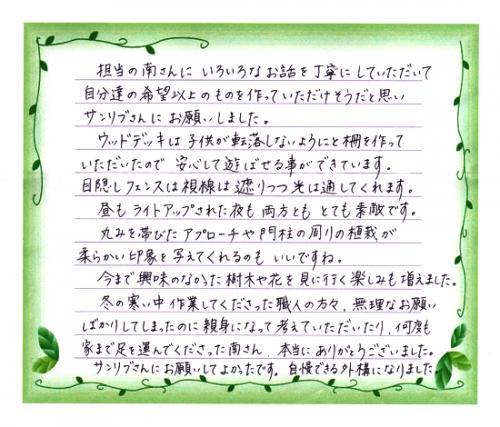 担当の南さんに いろいろなお話を丁寧にしていただいて
自分達の希望以上のものを作っていただけそうだと思い
サンリブさんにお願いしました。
ウッドデッキは子供が転落しないようにと柵を作って
いただいたので 安心して遊ばせる事ができています。
目隠しフェンスは視線は遮りつつ光は通してくれます。
昼もライトアップされた夜も両方とも とても素敵です。
丸みを帯びたアプローチや門柱の周りの植栽が
柔らかい印象を与えてくれるのも いいですね。
今まで興味のなかった樹木や花を見に行く楽しみも増えました。
冬の寒い中作業してくださった職人の方々、無理なお願い
ばかりしてしまったのに親身になって考えていただいたり、何度も
家まで足を運んでくださった南さん、本当にありがとうございました。
サンリブさんにお願いしてよかったです。自慢できる外構になりました。